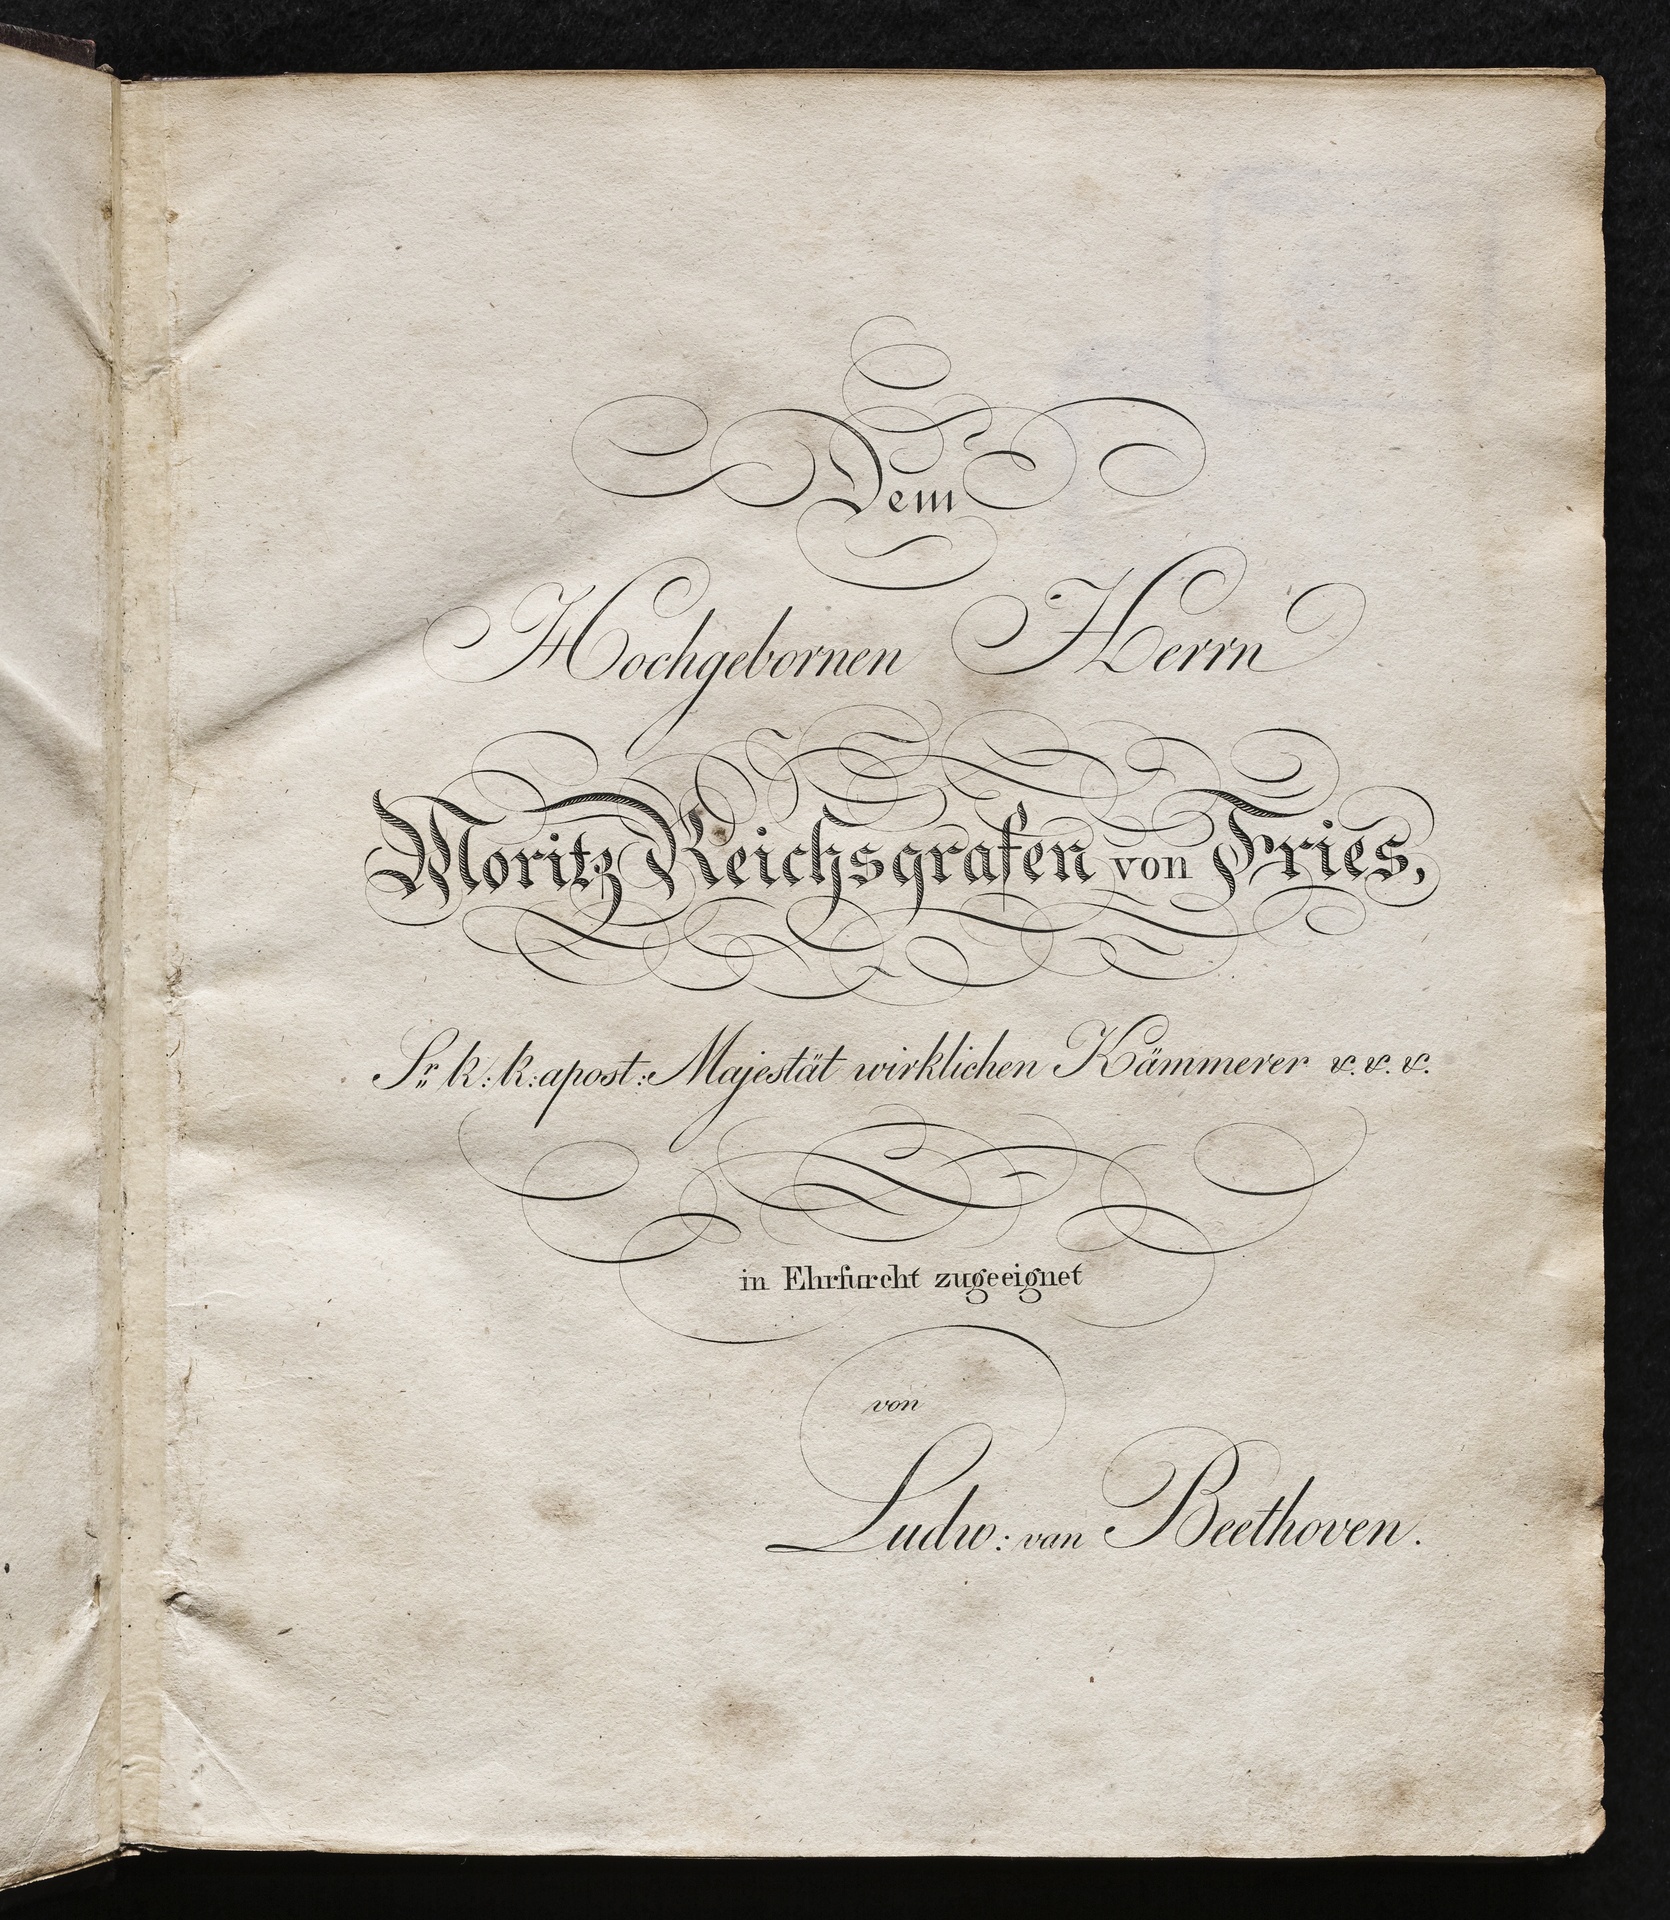 Dem
Hochgebornen Herrn
Moritz Reichsgrafen von Fries,
Sr. k: k: apost: Majestät wirklichen Kämmerer &. &. &.
in Ehrfurcht zugeeignet
von
Ludw: van Beethoven.